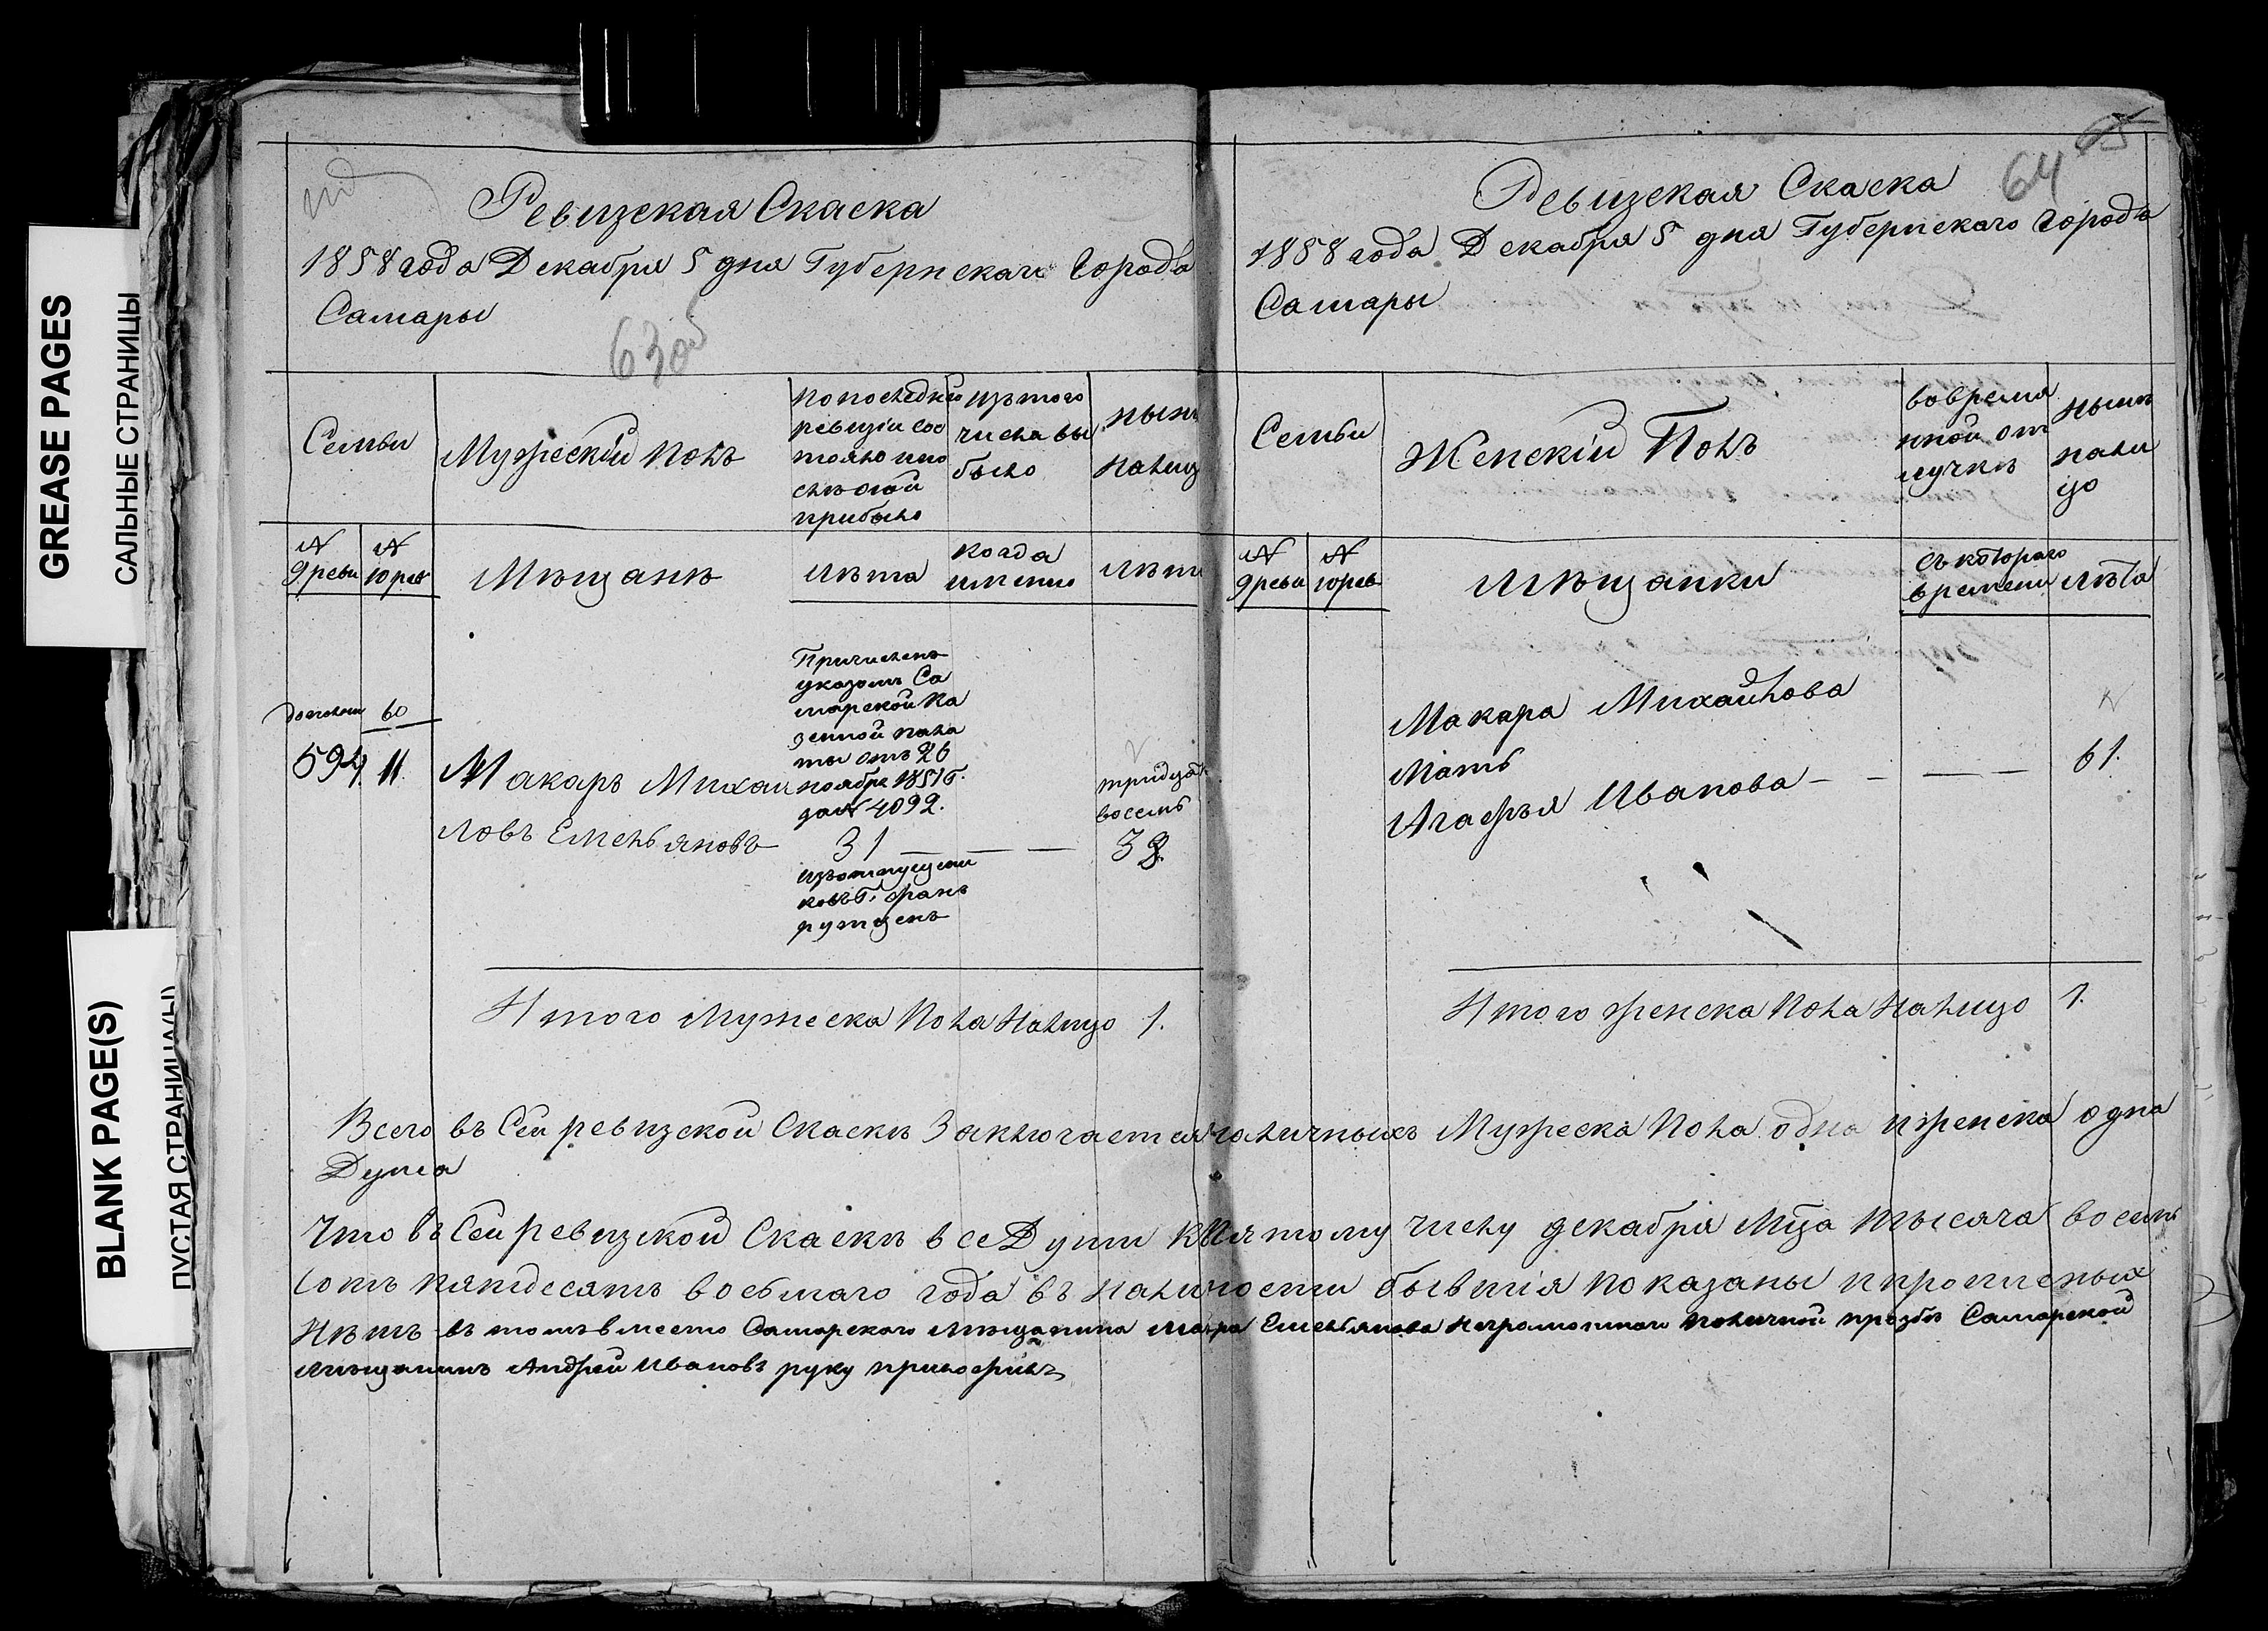 GREASE PAGES
САЛЬНЫЕ СТРАНИЦЫ
BLANK PAGE(S)
ПУСТАЯ СТРАНИЦА(Ы)
Ревизская Скаска
1858 года Декабря 5 дня Губернскаго Города
Самары
63об
Семьи
Мужескій полъ
По последней
ревизіи сос
тояло и по
слѣ оной
прибыло
Изътого
числа вы
было
нынѣ
налиц
№
9 реви
№
10 рев
Мѣщанѣ
Лѣта
когда
имянно
Лѣта
Причисленъ
указомъ Са
марской Ка
зенной пала
ты отъ 26
ноября 1851 г.
за № 4092.
60
594 11
Макаръ Михаи
ловъ Емельяновъ
31 — — —
тридцать
восемь
38.
Изъотпущени
ковъ Г. Фанъ
рутценъ
Итого мужеска пола налицо 1.
Ревизская Скаска
64 65
1858 года Декабря 5 дня Губернскаго Города
Самары
Семьи
Женскій Полъ
вовремя
нной от
лучкѣ
нынѣ
нали
цо
№
9 реви
№
10 рев
Мѣщанки
съ котораго
времени
лѣта
Макара Михайлова
Мать
Агафья Иванова — — — — 61.
Итого женска пола налицо 1.
Всего въ Сей ревизской Скаскѣ Заключается наличныхъ Мужеска пола одна и женска одна
Душа
Что въ Сей ревизской Скаскѣ все Души къ Пятому числу декабря Мца тысяча восемь
сотъ пятдесятъ восьмаго года въ наличности бывшія показаны и прописных
Нѣтъ въ томъ вместо Самарского мѣщанина Макара Емельянова неграмотного поличной прозбѣ Самарской
мѣщанинъ Андрей Ивановъ руку приложилъ